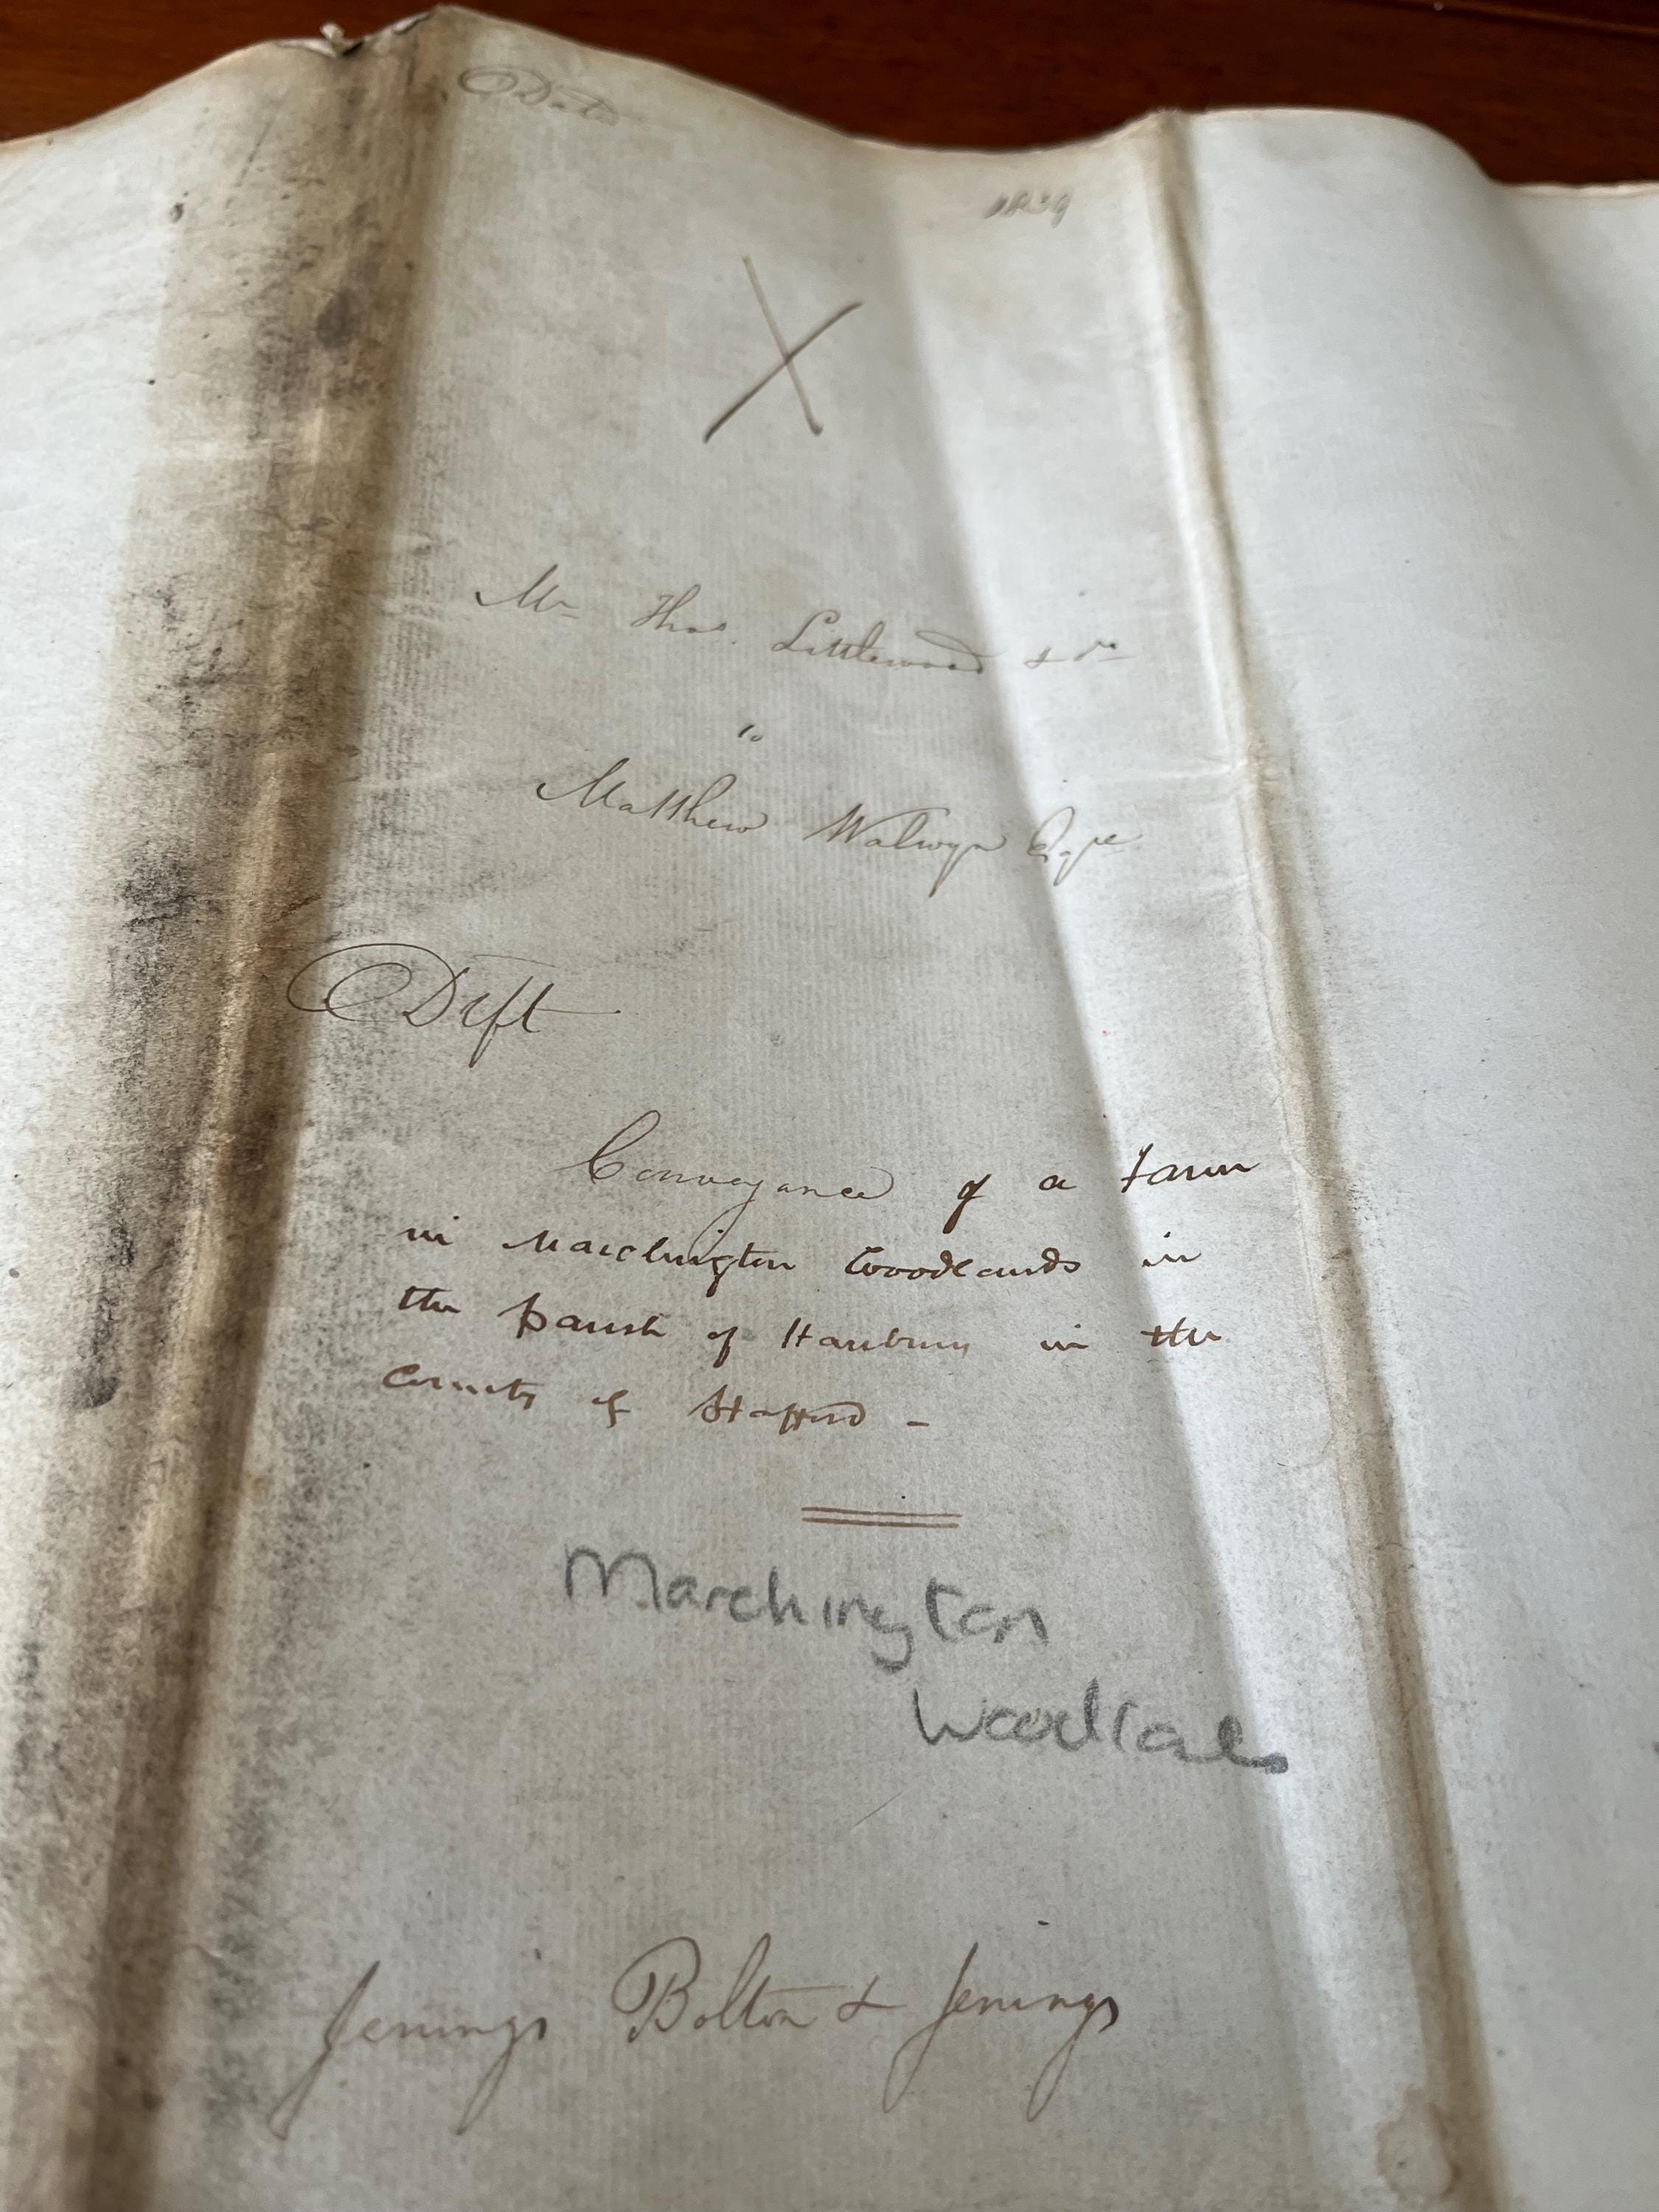 Dated
1839
X
Mr Thos. Littlewood & ors
to
Matthew Walwyn Esqre
Dift
Conveyance of a Farm
in Marchington Woodlands in
the Parish of Hanbury in the
County of Stafford -
Marchington
Woodlands
Jennings Bolton & Jennings